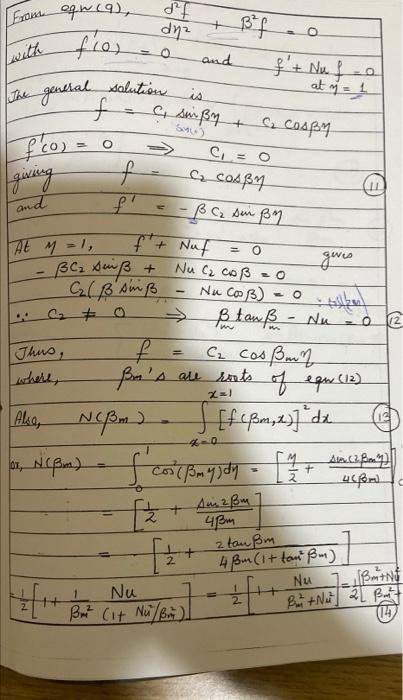 From eqn (9), d²f/dη² + β²f = 0
with f'(0) = 0 and f' + Nu f = 0
at η = 1
The general solution is
f = C₁ sin βη + C₂ cos βη
f'(0) = 0 ⇒ C₁ = 0
giving f = C₂ cos βη (11)
and f' = - β C₂ sin βη
At η = 1, f' + Nuf = 0 gives
- βC₂ sin β + Nu C₂ cos β = 0
C₂(β sin β - Nu cos β) = 0
∵ C₂ ≠ 0 ⇒ βₘ tan βₘ - Nu = 0 (12)
Thus, f = C₂ cos βₘη
where, βₘ's are roots of eqn (12)
Also, N(βₘ) = ∫_{x=0}^{x=1} [f(βₘ,x)]² dx (13)
or, N(βₘ) = ∫₀¹ cos²(βₘη)dη = [η/2 + sin(2βₘη)/4(βₘ)]
= [1/2 + sin 2βₘ/4βₘ]
= [1/2 + 2 tan βₘ/4βₘ(1+tan²βₘ)]
= 1/2 [1 + 1/βₘ² Nu/(1+ Nu²/βₘ²)] = 1/2 [1 + Nu/βₘ²+Nu²] = 1/2 [βₘ²+Nu²/βₘ²+
(14)